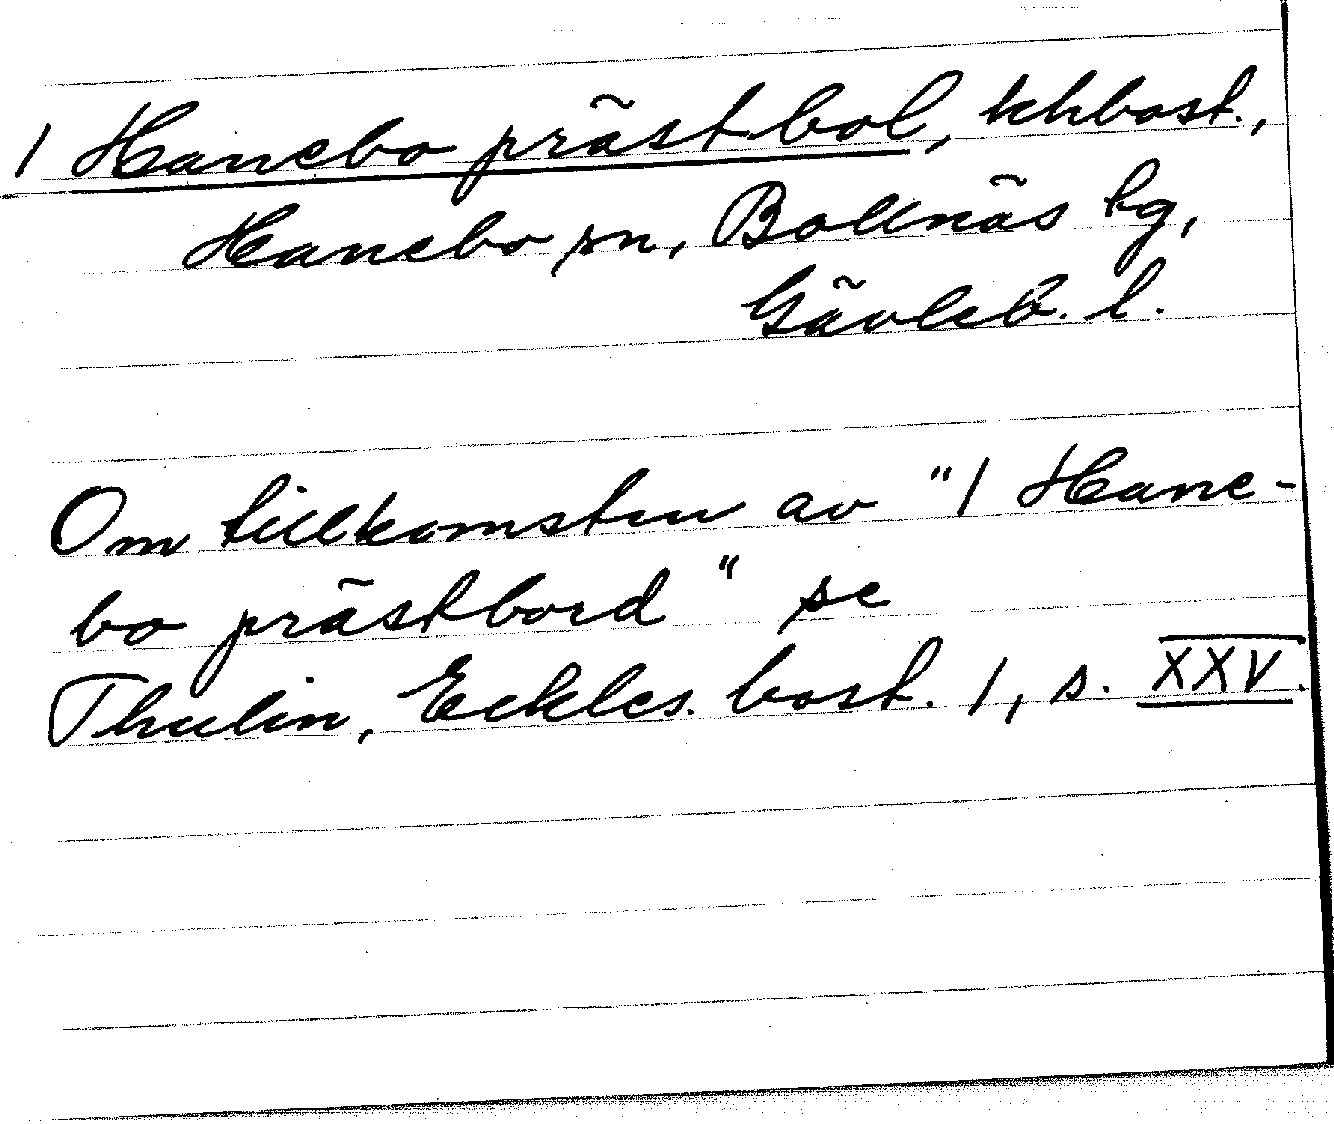 1 Hanebo prästbol, khbost.,
Hanebo sn, Bollnäs kg,
Gävleb. l.
Om tillkomsten av "1 Hane-
bo prästbord" se
Thulin, Eckles. bost. 1, s. XXV.